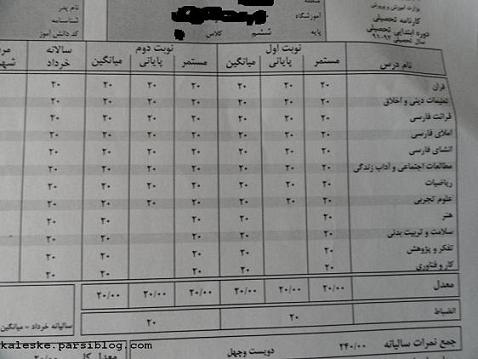 وزارت آموزش و پرورش
کارنامه تحصیلی
دوره ابتدایی تحصیلی
سال تحصیلی ۹۲-۹۱
منطقه
آموزشگاه
پایه ششم کلاس
نام پدر
شناسنامه
کد دانش آموز
نام درس نوبت اول نوبت دوم سالانه خرداد
مستمر پایانی میانگین مستمر پایانی میانگین
قرآن ۲۰ ۲۰ ۲۰ ۲۰ ۲۰ ۲۰ ۲۰
تعلیمات دینی و اخلاق ۲۰ ۲۰ ۲۰ ۲۰ ۲۰ ۲۰ ۲۰
قرائت فارسی ۲۰ ۲۰ ۲۰ ۲۰ ۲۰ ۲۰ ۲۰
املای فارسی ۲۰ ۲۰ ۲۰ ۲۰ ۲۰ ۲۰ ۲۰
انشای فارسی ۲۰ ۲۰ ۲۰ ۲۰ ۲۰ ۲۰ ۲۰
مطالعات اجتماعی و آداب زندگی ۲۰ ۲۰ ۲۰ ۲۰ ۲۰ ۲۰ ۲۰
ریاضیات ۲۰ ۲۰ ۲۰ ۲۰ ۲۰ ۲۰ ۲۰
علوم تجربی ۲۰ ۲۰ ۲۰ ۲۰ ۲۰ ۲۰ ۲۰
هنر ۲۰ ۲۰ ۲۰ ۲۰ ۲۰
سلامت و تربیت بدنی ۲۰ ۲۰ ۲۰ ۲۰ ۲۰
تفکر و پژوهش ۲۰ ۲۰ ۲۰ ۲۰ ۲۰
کار و فناوری ۲۰ ۲۰ ۲۰ ۲۰ ۲۰
معدل ۲۰/۰۰ ۲۰/۰۰ ۲۰/۰۰ ۲۰/۰۰ ۲۰/۰۰ ۲۰/۰۰
انضباط ۲۰ ۲۰
سالیانه خرداد = میانگین
جمع نمرات سالیانه ۲۴۰/۰۰ دویست وچهل
معدل کل ۲۰/۰۰
kaleske.parsiblog.com